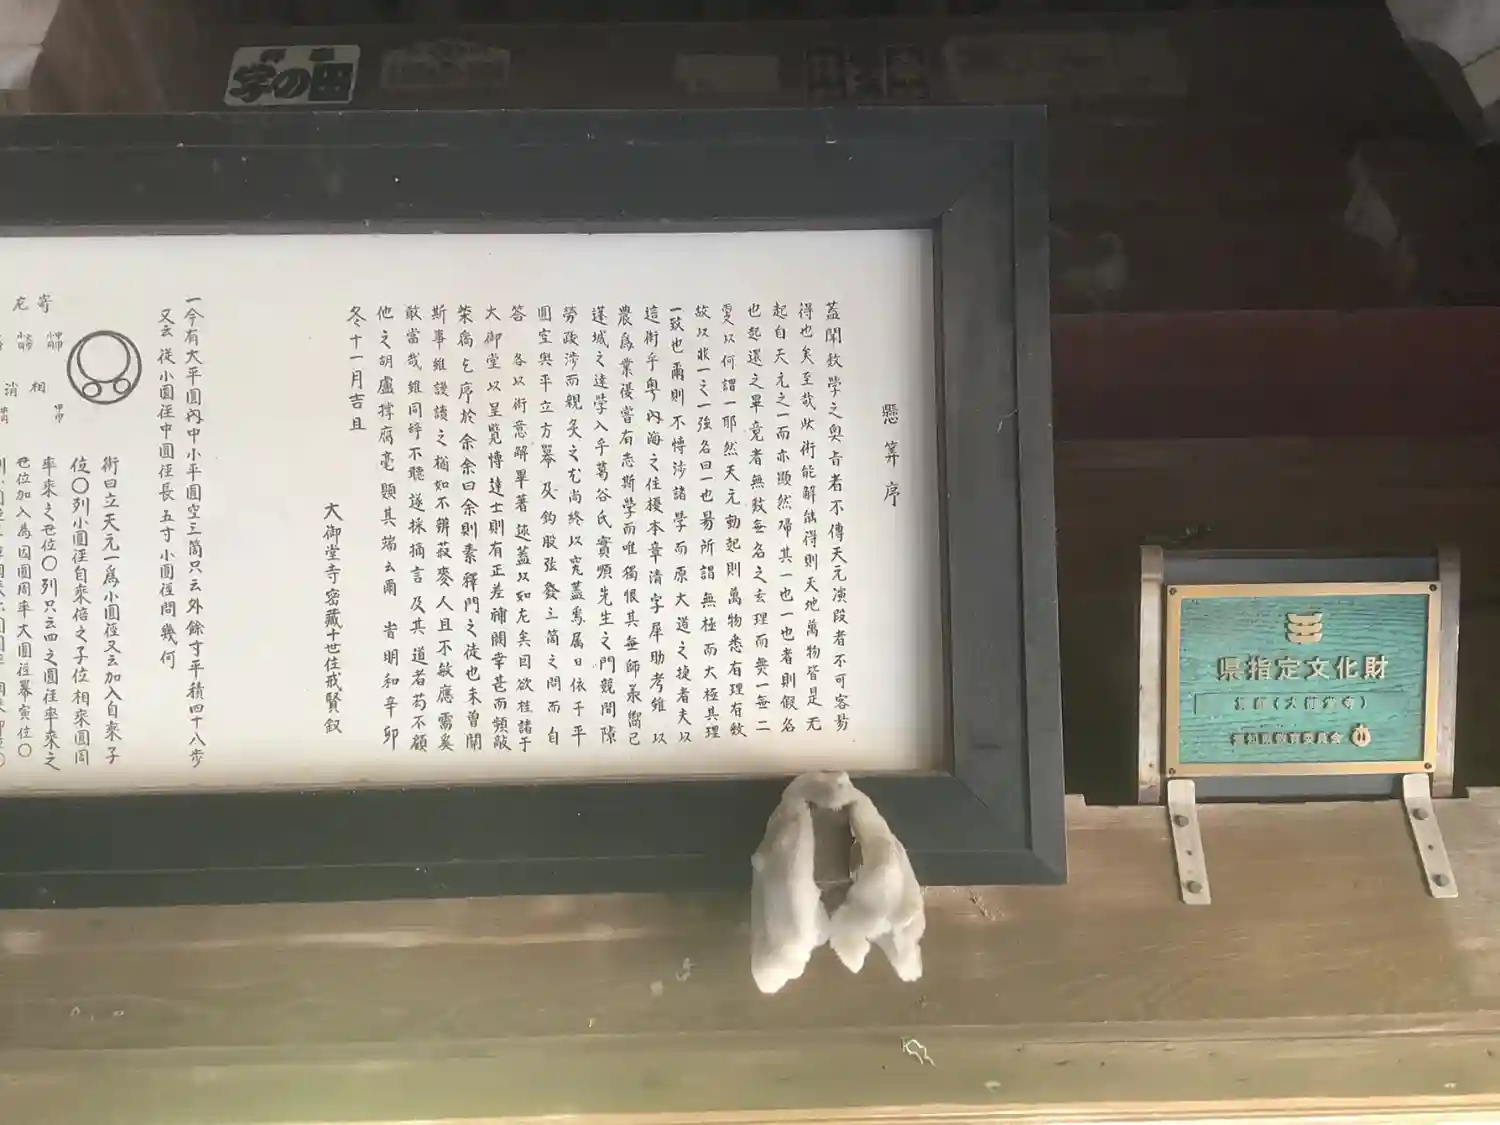 懸筭序
蓋聞数學之奥旨者不傳天元演段者不可容易
得也矣至哉此術能解能得則天地萬物皆是无
起自天元之一而亦顯然帰其一也一也者則假名
也起還之畢竟者無数無名之玄理而無一無二
変以何謂一耶然天元動起則萬物悉有理有数
故以非一之一強名曰一也易所謂無極而大極其理
一致也爾則不愽渉諸學而原大道之捷者夫以
這術乎粤内海之住榎本章清字犀助考雖以
農為業優嘗有志斯學而唯獨恨其無師羕嚮已
蓬城之達學入乎葛谷氏實順先生之門競間隙
勞政渉而親炙之尤尚終以究蓋焉属日依于平
圓空與平立方冪及鈎股弦發三箇之問而自
答各以術意解畢著述蓋以如左矣因欲桂諸于
大御堂以呈覧愽達士則有正差補闕幸甚而頻敲
柴扃乞序於余余曰余則素釋門之徒也未曽聞
斯事雖謾讀之猶如不辨菽麥人且不敏應需奚
敢當哉雖同辞不聴遂採摘言及其道者苟不顧
他之胡盧撑腐毫題其端云爾 旹明和辛卯
冬十一月吉旦
大御堂寺密藏十世住戒賢叙
一今有大平圓内中小平圓空三箇只云外餘寸平積四十八歩
又云従小圓径中圓径長五寸小圓径問幾何
術曰立天元一爲小圓径又云加入自乗子
位〇列小圓径自乗倍之子位相乗圓周
率乗之丑位〇列只云四之圓径率乗之
丑位加入為因圓周率大圓径冪寅位〇
寄
左
相
消
県指定文化財
(大御堂寺)
愛知県教育委員会